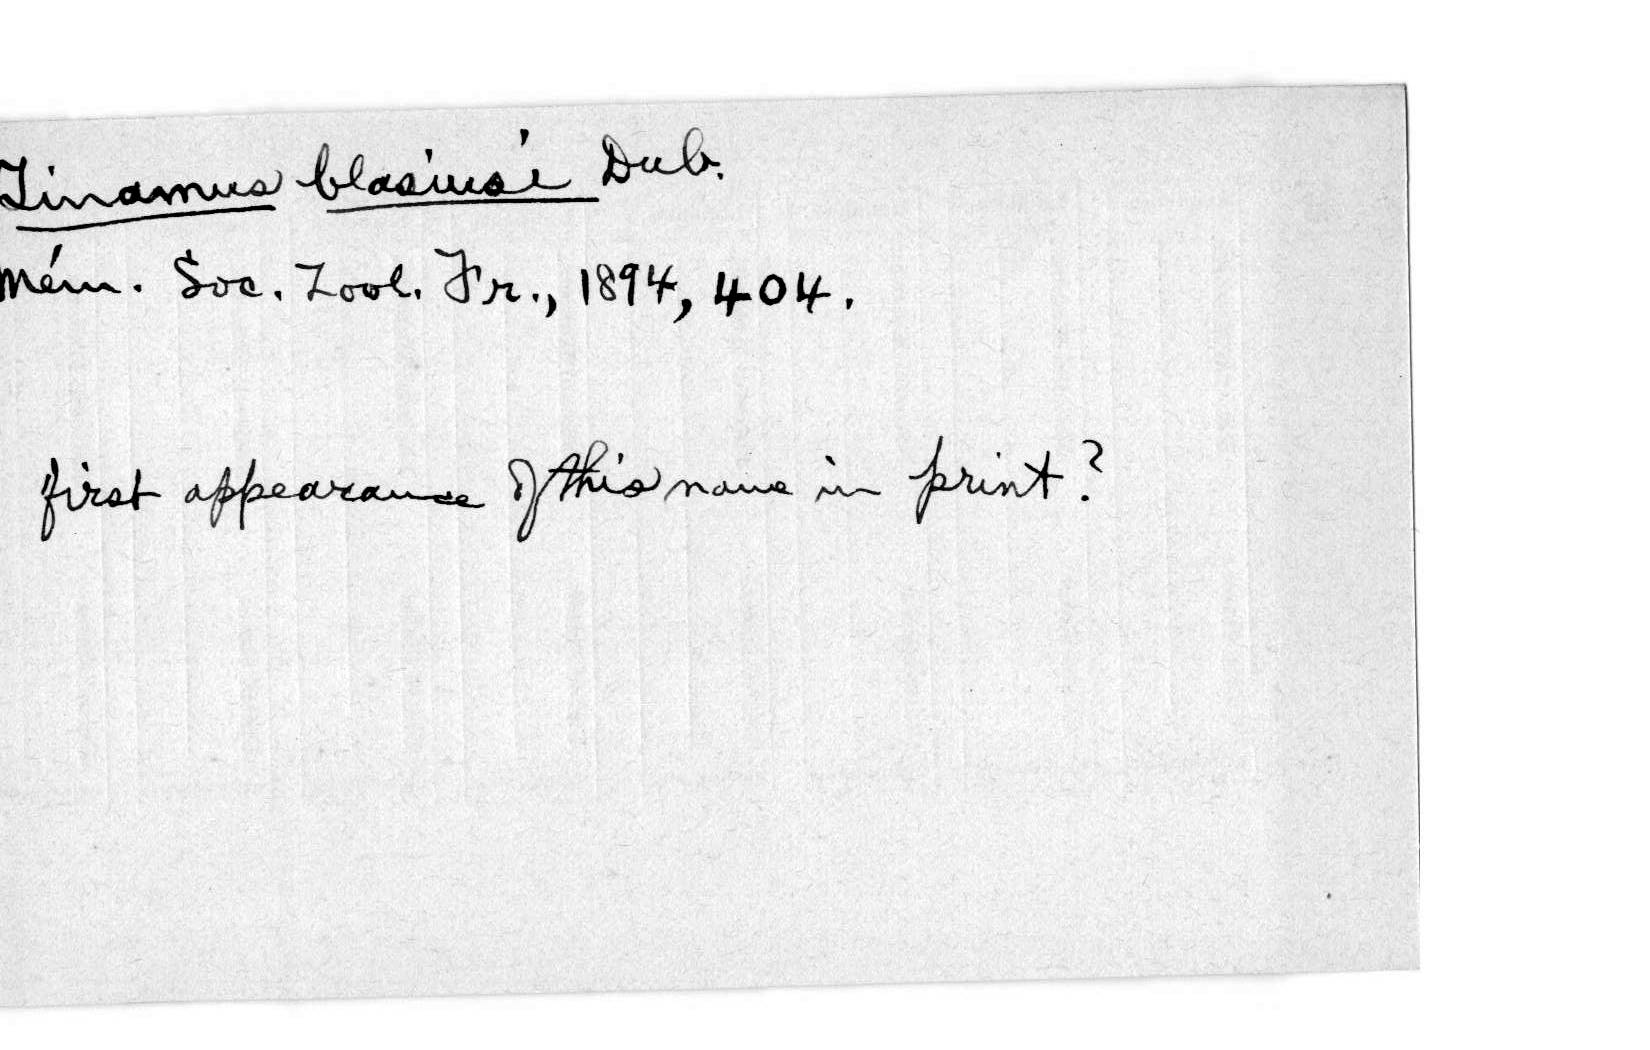 Tinamus blasiusi Dub.
Mém. Soc. Zool. Fr., 1894, 404.
first appearance of this name in print?